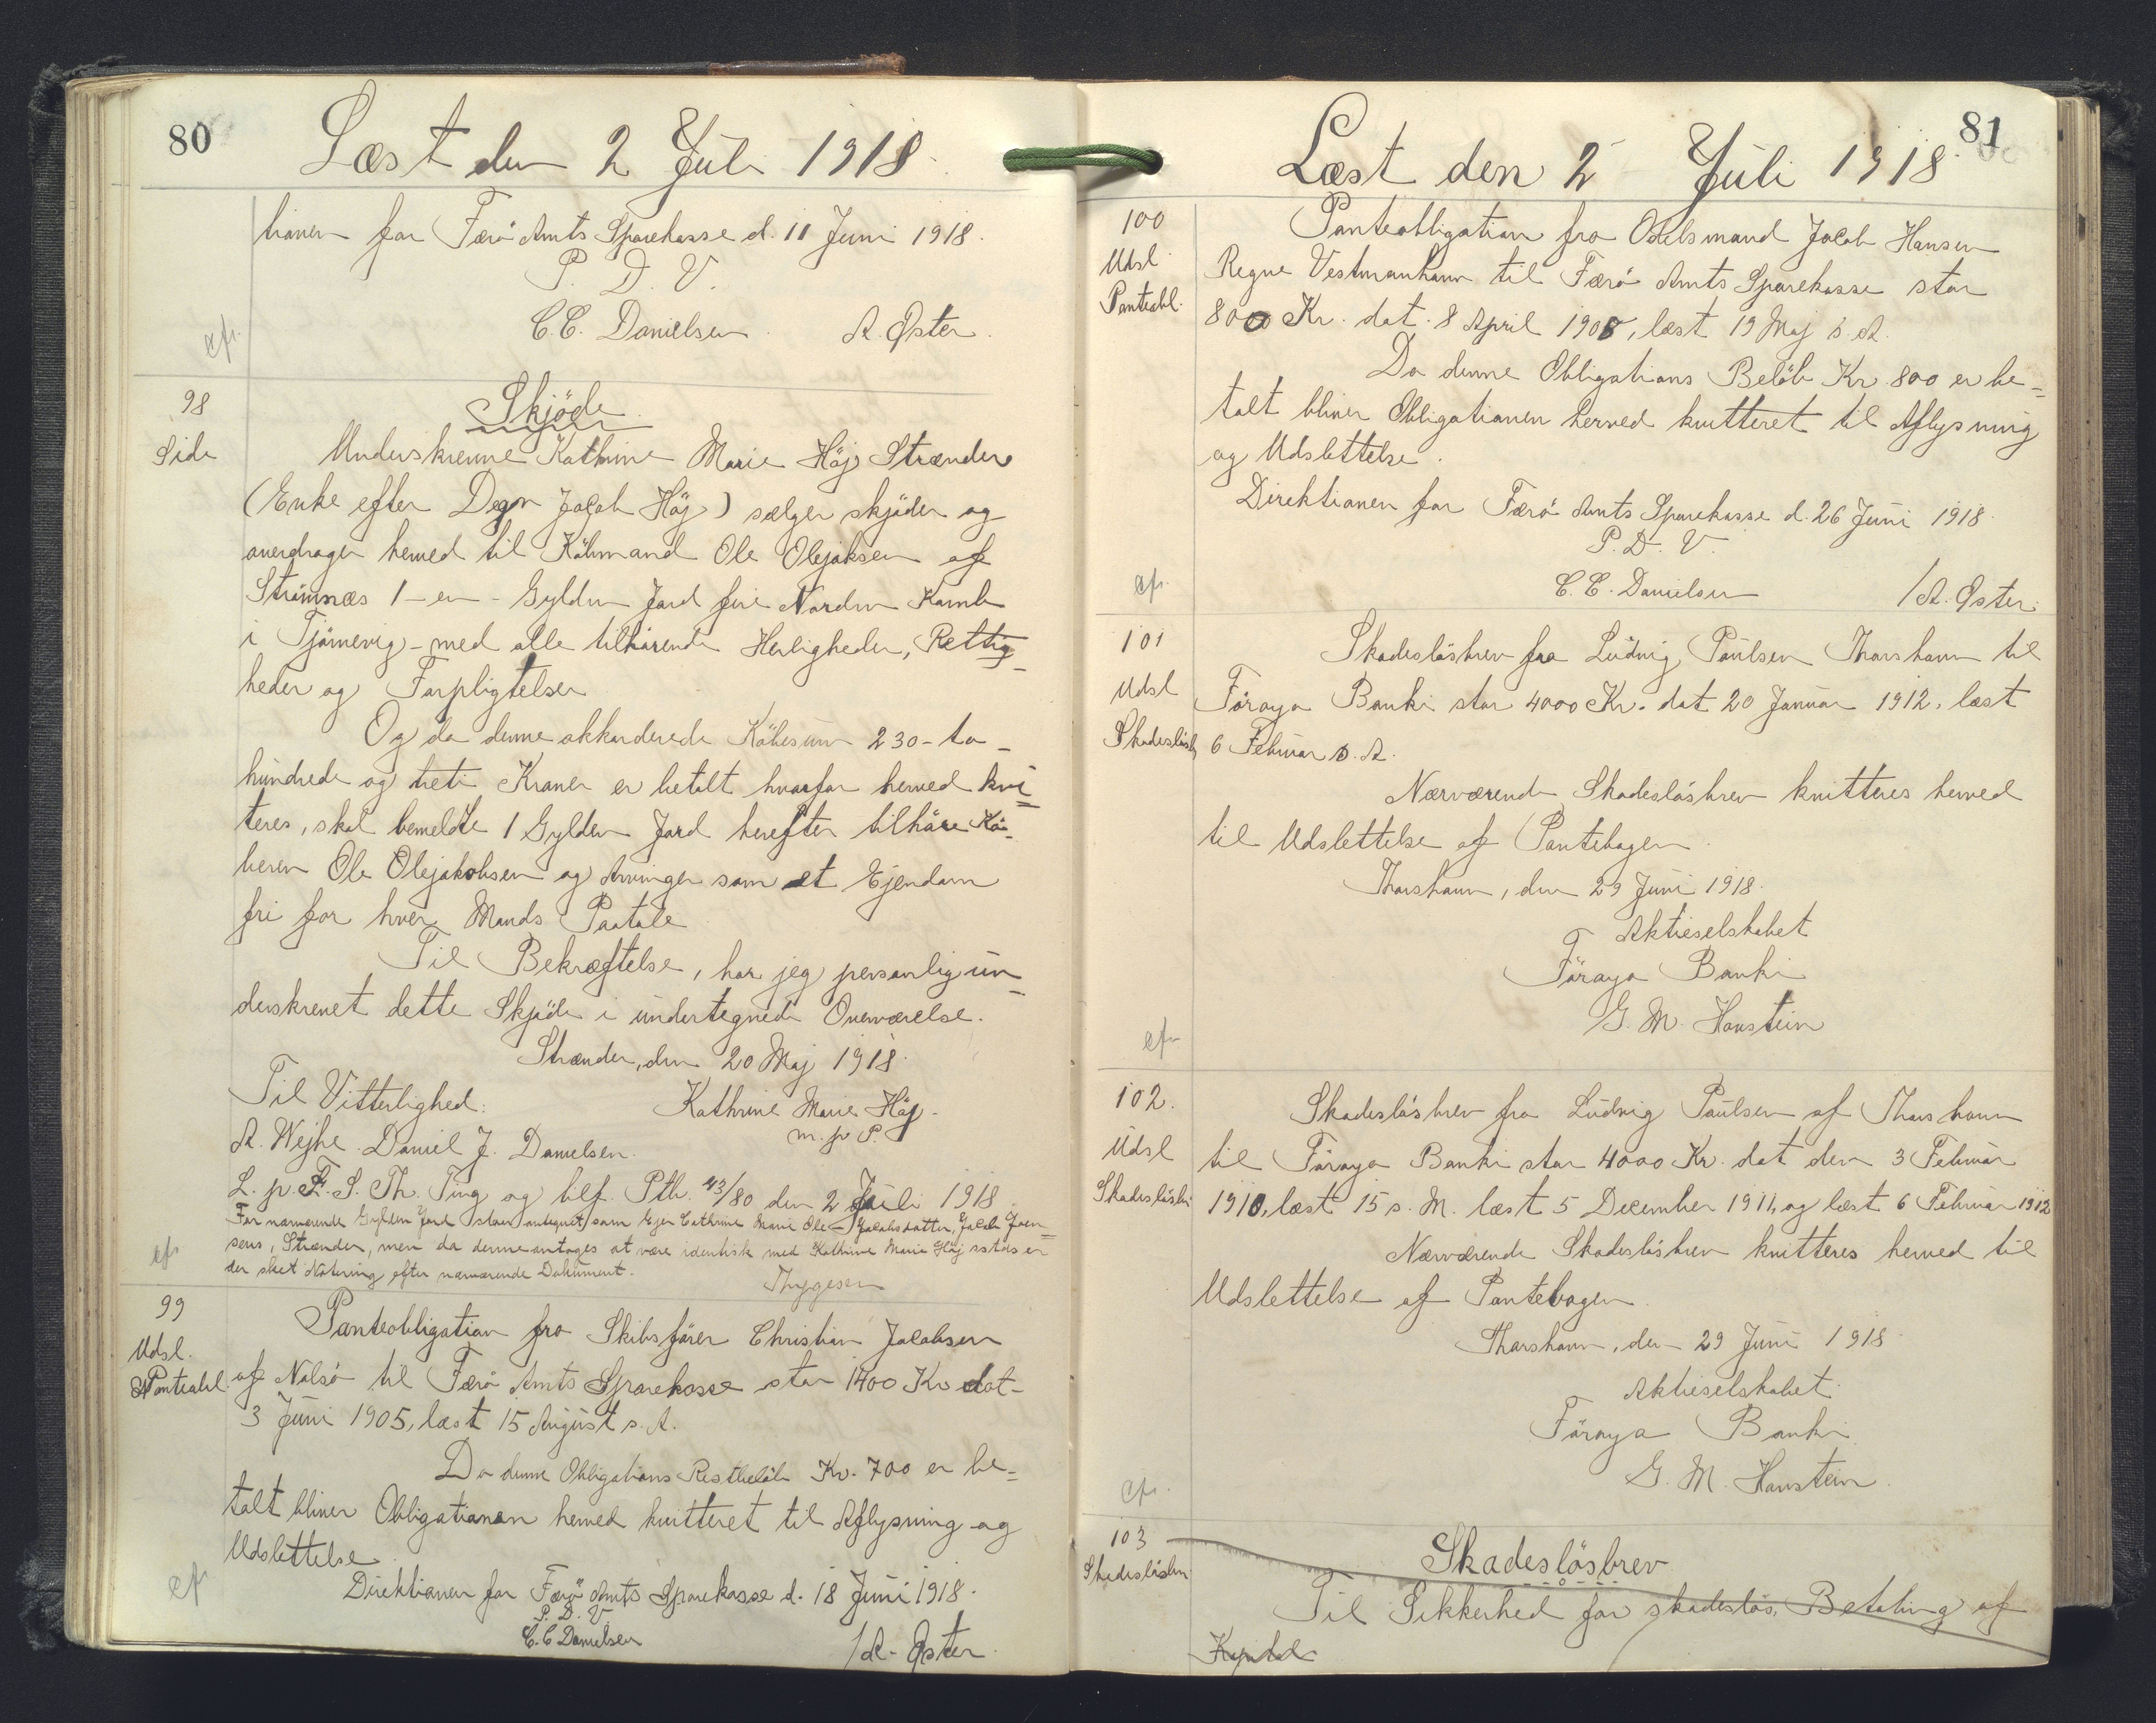 80
Læst den 2 Juli 1918.
tionen for Færö Amts Sparekasse d. 11 Juni 1918.
P. D. V.
C.C. Danielsen A. Øster.
cfr.
98
Side
Skjöde
Underskrevne Kathrine Marie Höj Strænder
(Enke efter Degn Jacob Höj) sælger skjöder og
overdrager herved til Köbmand Ole Olejaksen af
Strömnæs 1 - en - Gylden Jord fire Norden Kamb
i Tjörnevig - med alle tilhörende Herligheder, Rettig-
heder og Forpligtelser
Og da denne akkorderede Köbesum 230 - to -
hundrede og treti Kroner er betalt hvorfor herved kvi=
teres, skal bemeldte 1 Gylden Jord herefter tilhöre Kö-
beren Ole Olejakobsen og Arvinger som et Ejendom
fri for hver Mands Paatale
Til Bekræftelse, har jeg personlig un-
derskrevet dette Skjöde i undertegnede Overværelse.
Strænder, den 20 Maj 1918.
Til Vitterlighed: Kathrine Marie Höj.
m. p. P.
A. Wejhe. Daniel J. Danielsen.
L. p. F. S. Th. Ting og tilf. Ptb. 43/80 den 2 Juli 1918
For nærværende Gylden Jord staar antegnet som Ejer Cathrine Marie Ole - Jacobsdatter, Jacob Joen=
sens, Strænder, men da denne antages at være identisk med Kathrine Marie Höj sstds er
der sket Notering efter nærværende Dokument.
Thygesen
cfr
99
Udsl.
Panteobl.
Panteobligation fra Skibsförer Christian Jacobsen
af Nolsö til Færö Amts Sparekasse stor 1400 Kr dat-
3 Juni 1905, læst 15 August s. A.
Da denne Obligations Restbelöb Kr. 700 er be=
talt bliver Obligationen herved kvitteret til Aflysning og
Udslettelse
Direktionen for Færö Amts Sparekasse d. 18 Juni 1918.
P. D. V.
C.C Danielsen
/A. Øster
cfr
81
Læst den 2 Juli 1918.
100
Udsl.
Panteobl.
Panteobligation fra Odelsmand Jacob Hansen
Regne Vestmanhavn til Færö Amts Sparekasse stor
800 Kr. dat. 8 April 1908, læst 19 Maj s. A.
Da denne Obligations Belöb Kr. 800 er be=
talt bliver Obligationen herved kvitteret til Aflysning
og Udslettelse.
Direktionen for Færö Amts Sparekasse d. 26 Juni 1918.
P. D. V.
C. C. Danielsen /A. Øster.
cfr.
101
Udsl
Skadeslösb.
Skadeslösbrev fra Ludvig Poulsen Thorshavn til
Föroya Banki stor 4000 Kr. dat 20 Januar 1912, læst
6 Februar s. A.
Nærværende Skadeslösbrev kvitteres herved
til Udslettelse af Pantebogen.
Thorshavn, den 29 Juni 1918.
Aktieselskabet
Föroya Banki
G. M. Hanstein
cfr
102.
Udsl
Skadeslösbr.
Skadeslösbrev fra Ludvig Poulsen af Thorshavn
til Föroya Banki stor 4000 Kr. dat den 3 Februar
1910, læst 15 s. M. læst 5 December 1911, og læst 6 Februar 1912
Nærværende Skadeslösbrev kvitteres herved til
Udslettelse af Pantebogen
Thorshavn, den 29 Juni 1918.
Aktieselskabet.
Föroya Banki
G. M. Hanstein.
cfr.
103
Skadeslösbr.
Skadeslösbrev
Til Sikkerhed for skadeslös Betaling af
Kapital